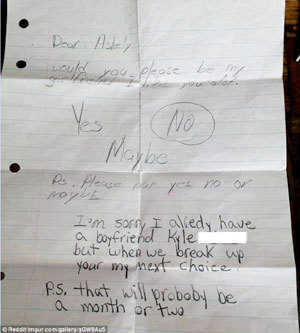 Dear. Ashely
would you please be my
girlfriend I like you alot.
Yes
No
Maybe
Ps. Please put yes no or
I'm sorry I alredy have
a boyfriend Kyle
but when we break up
your my next choice.
P.S. that will proboby be
a month or two
© Reddit/imgur.com/gallery/qGW8Au5